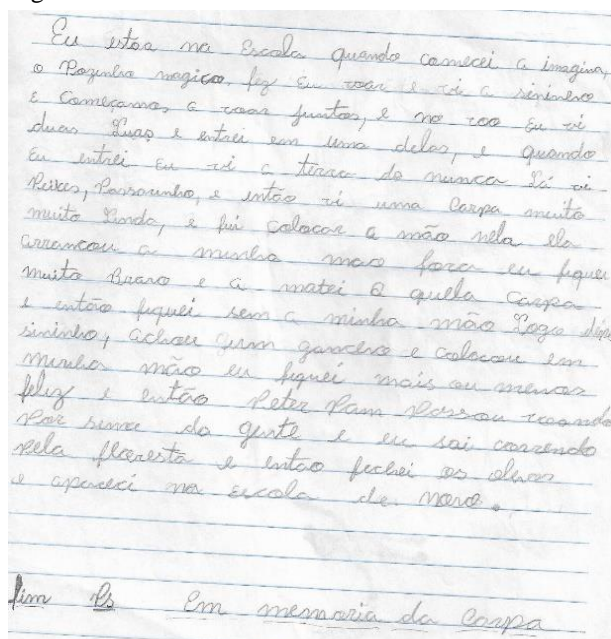 Eu estoa na Escola quando comecei a imagina,
o Pozinho magico fez eu voar e vi a sininho
E começamos a voar juntos, e no voo Eu vi
duas Luas e entrei em uma delas, e quando
Eu entrei Eu vi a terra do nunca Lá vi
Peixes, Passarinho, e então vi uma Carpa muito
muito Linda, e fui colocar a mão nela ela
arrancou a minha mao fora eu fiquei
muito Bravo e a matei a quella carpa
e então fiquei sem a minha mão Logo depois
sininho, achou gum gancho e colocou em
minha mão eu fiquei mais ou menos
feliz e então Peter Pam Passou voando
Por sima da gente e eu sai correndo
pela floresta e então fechei os olhos
e apareci na escola de novo.
fim Ps Em memoria da Carpa